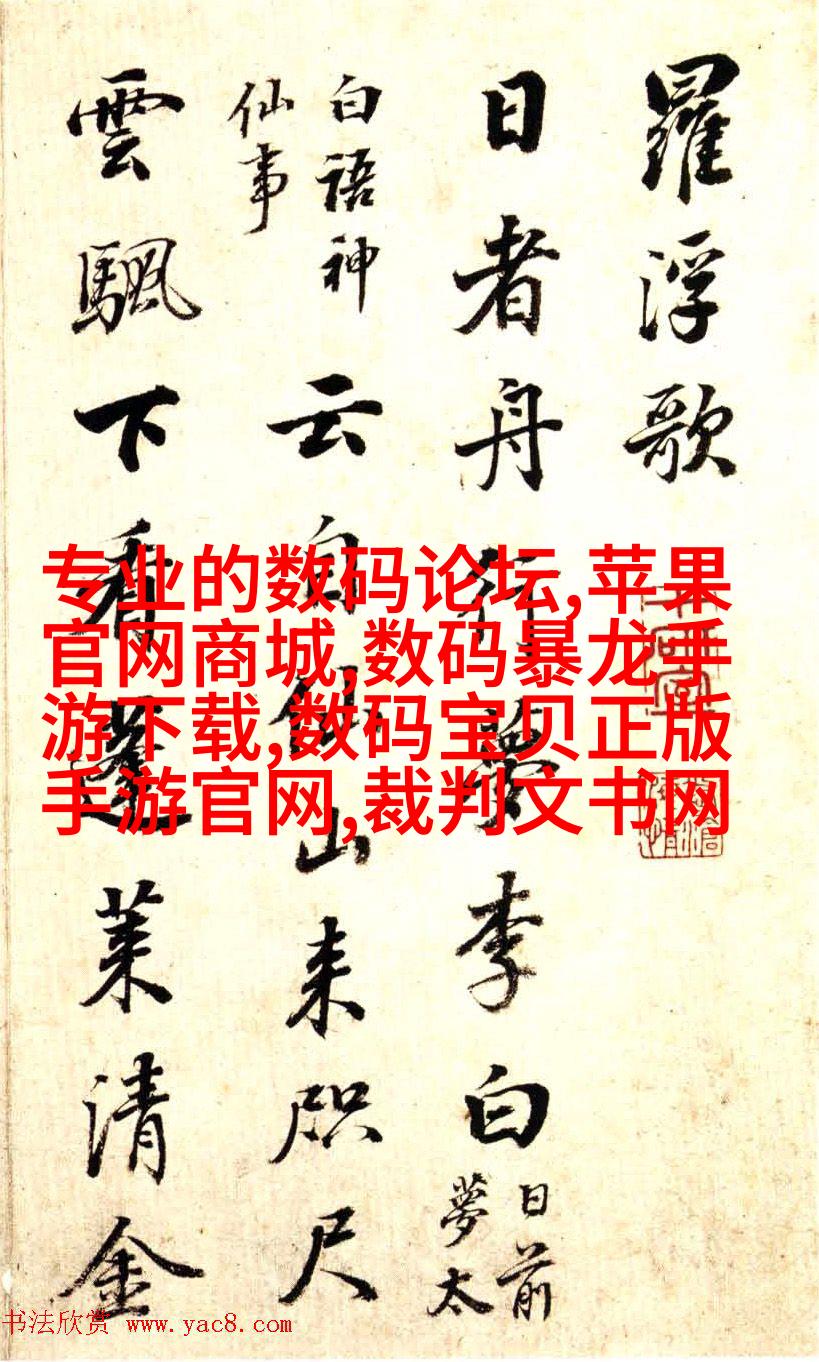 羅浮歌
日者舟行夢李白
日前
夢太
白語神
仙事
云自山来咫尺
雲颿下看蓬莱清金
专业的数码论坛,苹果
官网商城,数码暴龙手
游下载,数码宝贝正版
手游官网,裁判文书网
书法欣赏 www.yac8.com